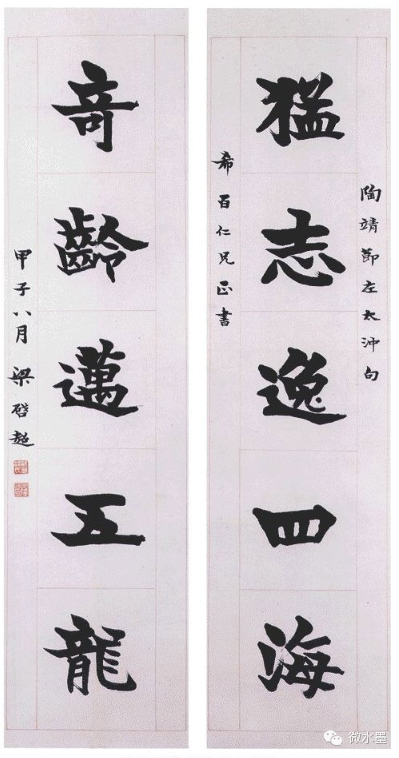 陶靖節左太沖句
猛志逸四海
希百仁兄正書
竒齡邁五龍
甲子八月 梁啓超
微水墨